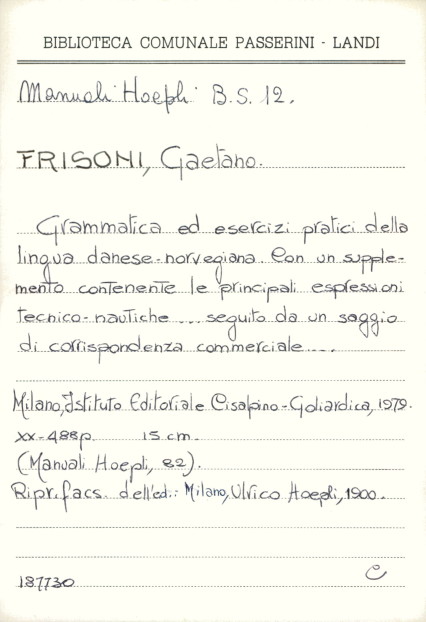 BIBLIOTECA COMUNALE PASSERINI - LANDI
Manuali Hoepli B.S. 12.
FRISONI, Gaetano.
Grammatica ed esercizi pratici della
lingua danese-norvegiana. Con un supple-
mento contenente le principali espressioni
tecnico-nautiche ... seguito da un saggio
di corrispondenza commerciale ....
Milano, Istituto Editoriale Cisalpino-Goliardica, 1979.
XX-488p. 15 cm.
(Manuali Hoepli, 82).
Ripr. facs. dell'ed.: Milano, Ulrico Hoepli, 1900.
187730 C